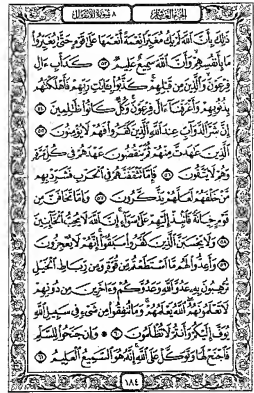 الجزء العاشر ٨ سورة الأنفال
ذَٰلِكَ بِأَنَّ ٱللَّهَ لَمْ يَكُ مُغَيِّرًا نِّعْمَةً أَنْعَمَهَا عَلَىٰ قَوْمٍ حَتَّىٰ يُغَيِّرُوا۟
مَا بِأَنفُسِهِمْ وَأَنَّ ٱللَّهَ سَمِيعٌ عَلِيمٌ ٥٣ كَدَأْبِ ءَالِ
فِرْعَوْنَ وَٱلَّذِينَ مِن قَبْلِهِمْ كَذَّبُوا۟ بِـَٔايَٰتِ رَبِّهِمْ فَأَهْلَكْنَٰهُم
بِذُنُوبِهِمْ وَأَغْرَقْنَآ ءَالَ فِرْعَوْنَ وَكُلٌّ كَانُوا۟ ظَٰلِمِينَ ٥٤
إِنَّ شَرَّ ٱلدَّوَآبِّ عِندَ ٱللَّهِ ٱلَّذِينَ كَفَرُوا۟ فَهُمْ لَا يُؤْمِنُونَ ٥٥
ٱلَّذِينَ عَٰهَدتَّ مِنْهُمْ ثُمَّ يَنقُضُونَ عَهْدَهُمْ فِى كُلِّ مَرَّةٍ
وَهُمْ لَا يَتَّقُونَ ٥٦ فَإِمَّا تَثْقَفَنَّهُمْ فِى ٱلْحَرْبِ فَشَرِّدْ بِهِم
مَّنْ خَلْفَهُمْ لَعَلَّهُمْ يَذَّكَّرُونَ ٥٧ وَإِمَّا تَخَافَنَّ مِن
قَوْمٍ خِيَانَةً فَٱنۢبِذْ إِلَيْهِمْ عَلَىٰ سَوَآءٍ إِنَّ ٱللَّهَ لَا يُحِبُّ ٱلْخَآئِنِينَ
٥٨ وَلَا يَحْسَبَنَّ ٱلَّذِينَ كَفَرُوا۟ سَبَقُوٓا۟ إِنَّهُمْ لَا يُعْجِزُونَ
٥٩ وَأَعِدُّوا۟ لَهُم مَّا ٱسْتَطَعْتُم مِّن قُوَّةٍ وَمِن رِّبَاطِ ٱلْخَيْلِ
تُرْهِبُونَ بِهِۦ عَدُوَّ ٱللَّهِ وَعَدُوَّكُمْ وَءَاخَرِينَ مِن دُونِهِمْ
لَا تَعْلَمُونَهُمُ ٱللَّهُ يَعْلَمُهُمْ وَمَا تُنفِقُوا۟ مِن شَىْءٍ فِى سَبِيلِ ٱللَّهِ
يُوَفَّ إِلَيْكُمْ وَأَنتُمْ لَا تُظْلَمُونَ ٦٠ وَإِن جَنَحُوا۟ لِلسَّلْمِ
فَٱجْنَحْ لَهَا وَتَوَكَّلْ عَلَى ٱللَّهِ إِنَّهُۥ هُوَ ٱلسَّمِيعُ ٱلْعَلِيمُ ٦١
١٨٤